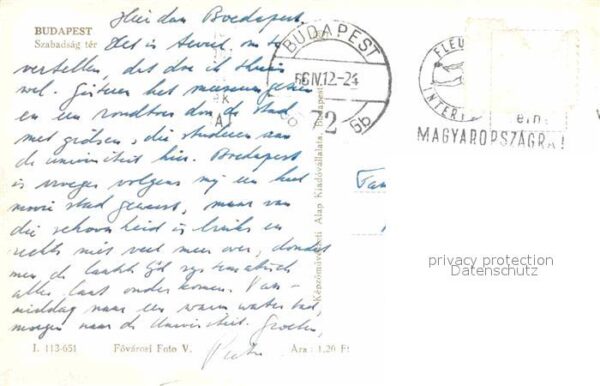 BUDAPEST
Szabadság tér
Hier dan Boedapest.
Het is teveel om te
vertellen, dat doe ik thuis
wel. Gisteren het museum gezien
en een rondtoer door de stad
met gidsen, die studeren aan
de universiteit hier. Boedapest
is vroeger volgens mij een heel
mooie stad geweest, maar van
die schoonheid is links en
rechts niet veel meer over, doordat
men de laatste tijd systematisch
alles laat onder komen. Van-
middag naar een warm water bad,
morgen naar de Universiteit. Groeten,
I. 113-651
Fővárosi Foto V.
Ára : 1,20 Ft
Képzőművészeti Alap Kiadóvállalata, Budapest
BUDAPEST
IV.12-24
72
5b
INTER
ein
MAGYARORSZÁGRA!
Fam
privacy protection
Datenschutz